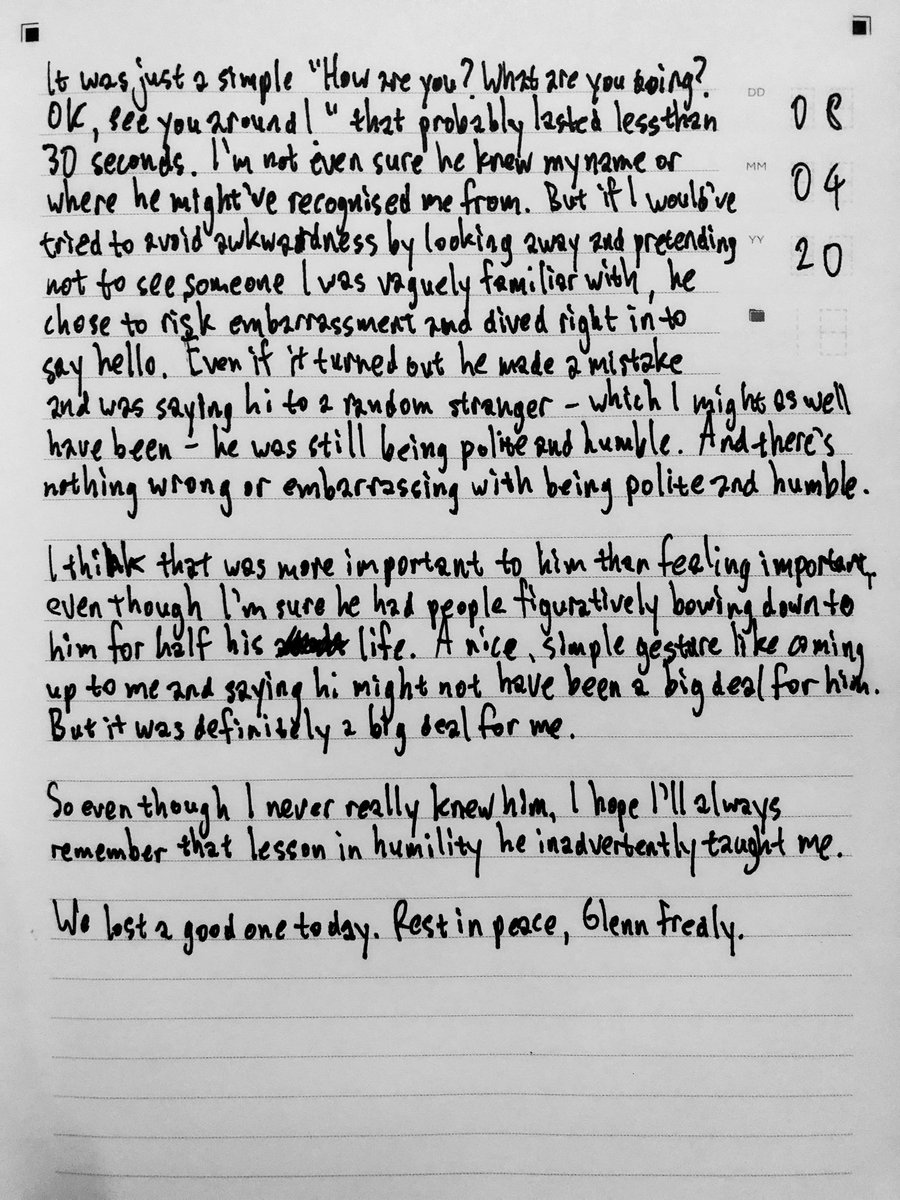 It was just a simple "How are you? What are you doing?
DD 08
OK, see you around!" that probably lasted less than
30 seconds. I'm not even sure he knew my name or
MM 04
where he might've recognised me from. But if I would've
tried to avoid awkwardness by looking away and pretending
YY 20
not to see someone I was vaguely familiar with, he
chose to risk embarrassment and dived right in to
say hello. Even if it turned out he made a mistake
and was saying hi to a random stranger – which I might as well
have been – he was still being polite and humble. And there's
nothing wrong or embarrassing with being polite and humble.
I think that was more important to him than feeling important,
even though I'm sure he had people figuratively bowing down to
him for half his life. A nice, simple gesture like coming
up to me and saying hi might not have been a big deal for him.
But it was definitely a big deal for me.
So even though I never really knew him, I hope I'll always
remember that lesson in humility he inadvertently taught me.
We lost a good one today. Rest in peace, Glenn Fredly.